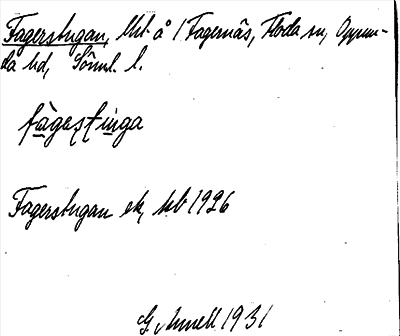 Fagerstugan, lht å /Fagernäs, Floda sn, Oppun-
da hd, Söml. l.
fàgesṭinga
Fagerstugan ek, hb 1926
G. 1931